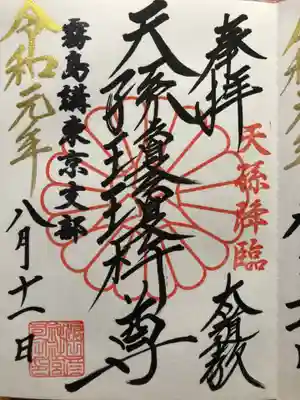 奉拝
天孫降臨
天孫瓊瓊杵尊
霧島講東京支部
令和元年
八月十一日